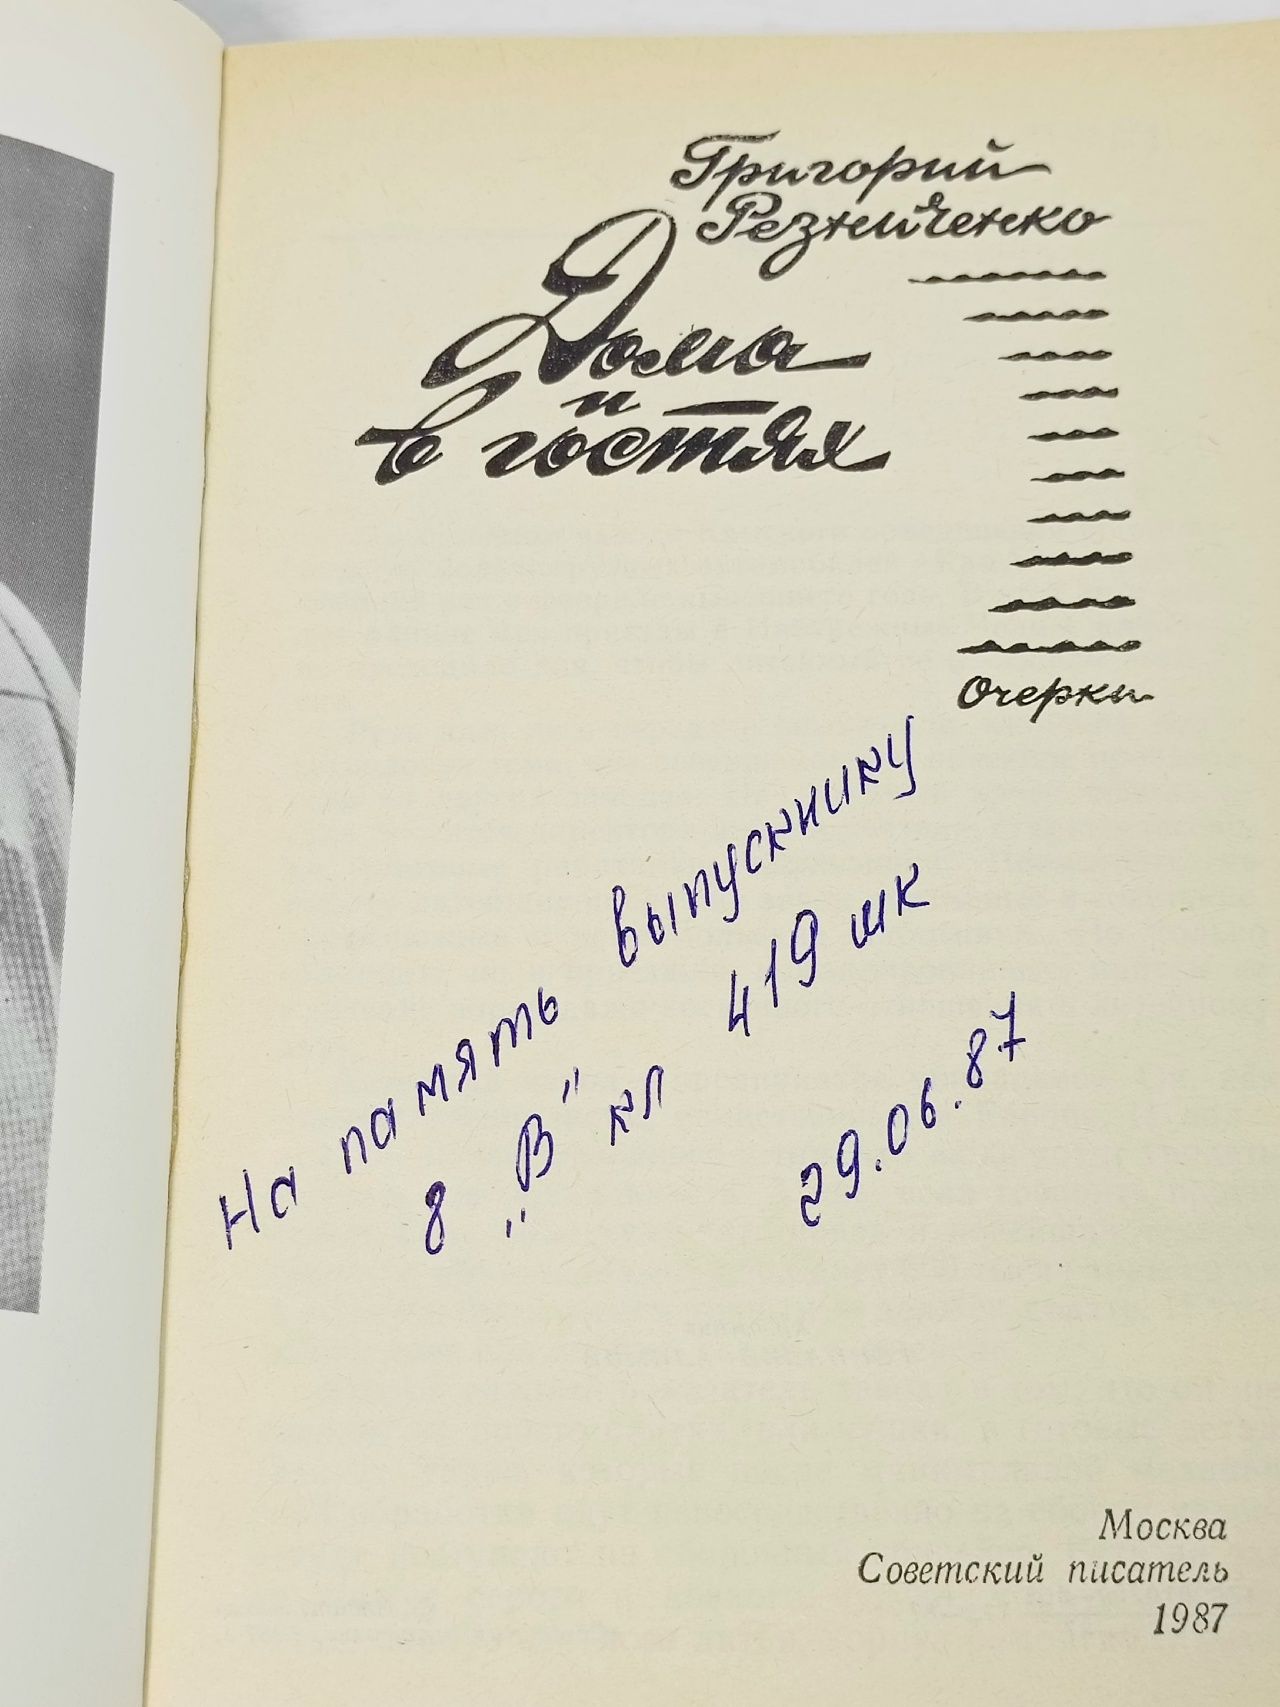 Григорий
Резниченко
Дома
и
в гостях
Очерки
На память выпускнику
8 "В" кл 419 шк
29.06.87
Москва
Советский писатель
1987